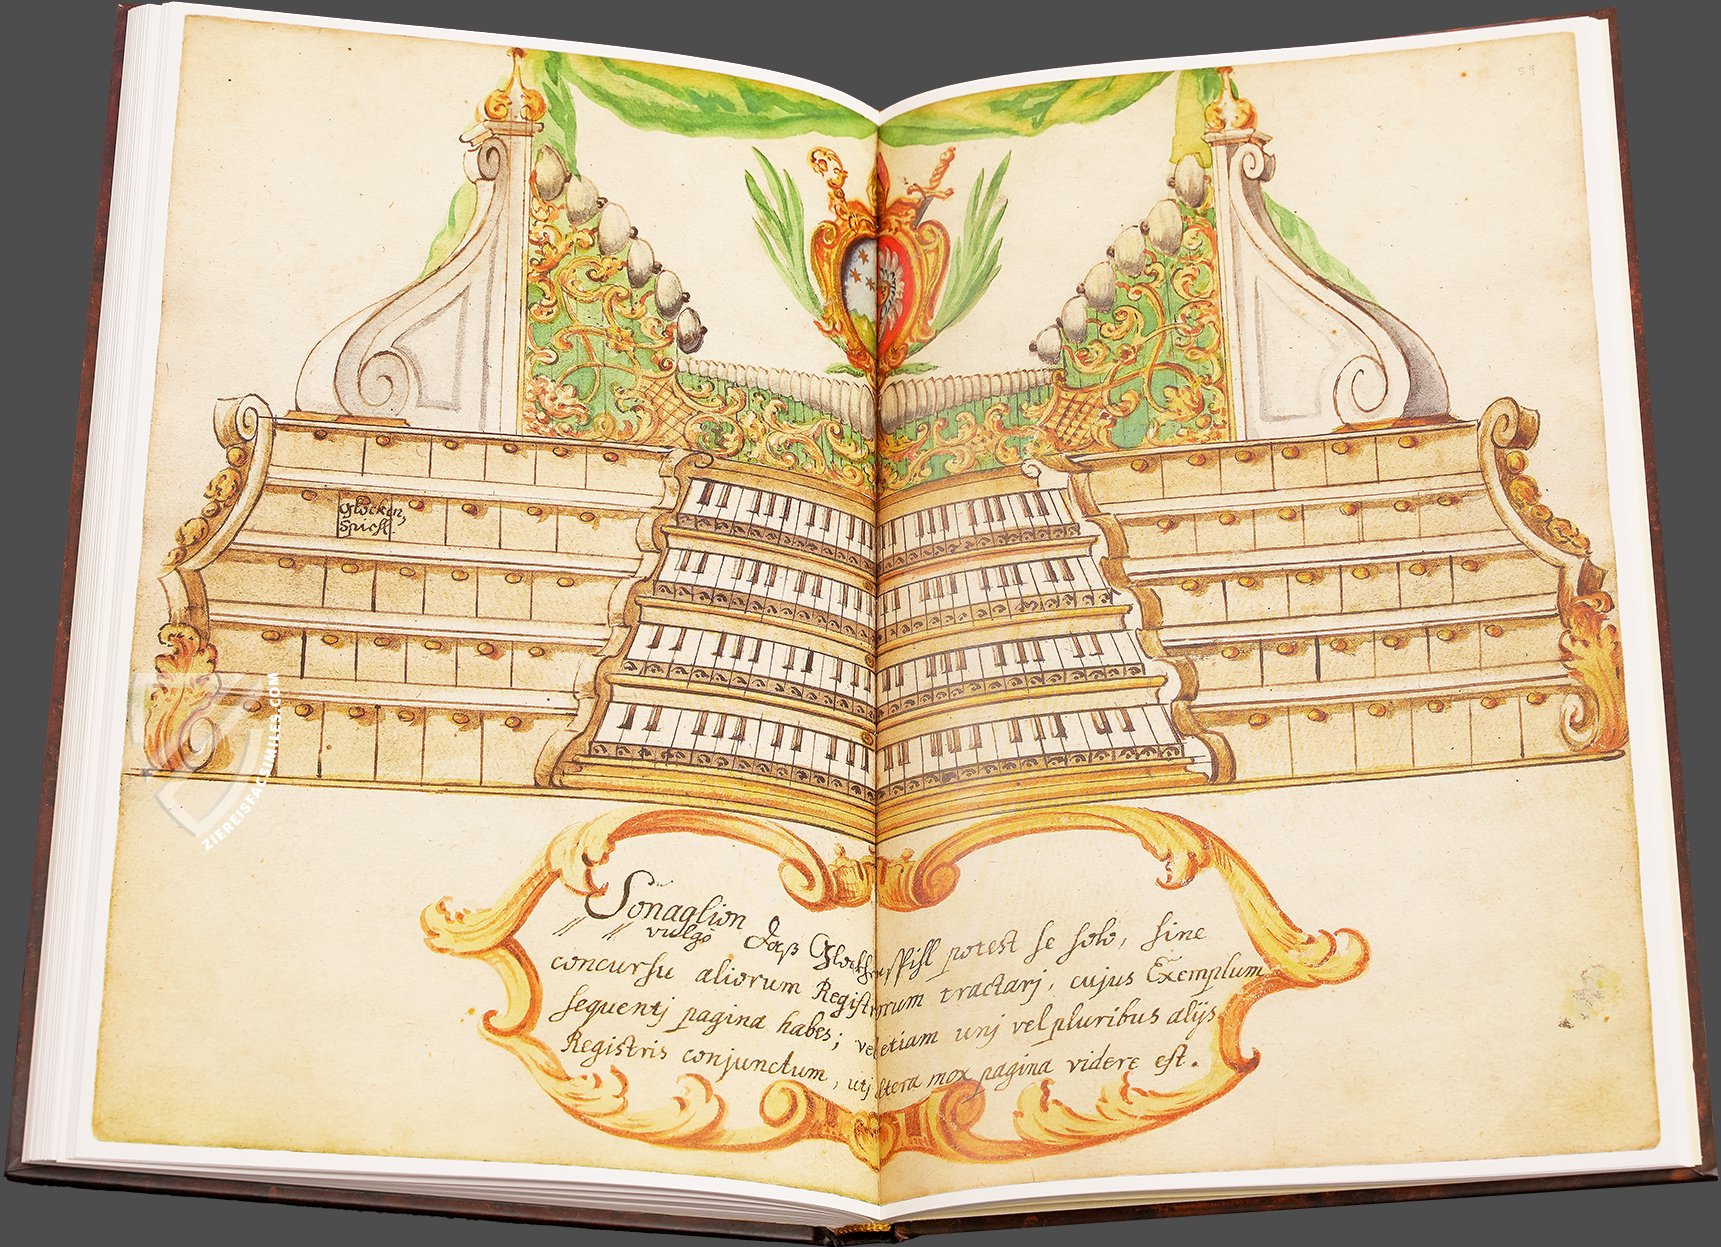 59
Glocken,
Spiehl.
ZIEREISFACSIMILES.COM
Sonaglion
vulgò daß Glockhenspihl potest se solo, sine
concursu aliorum Registrorum tractarj, cujus Exemplum
sequentj pagina habes; vel etiam unj vel pluribus alijs
Registris conjunctum, utj altera mox pagina videre est.